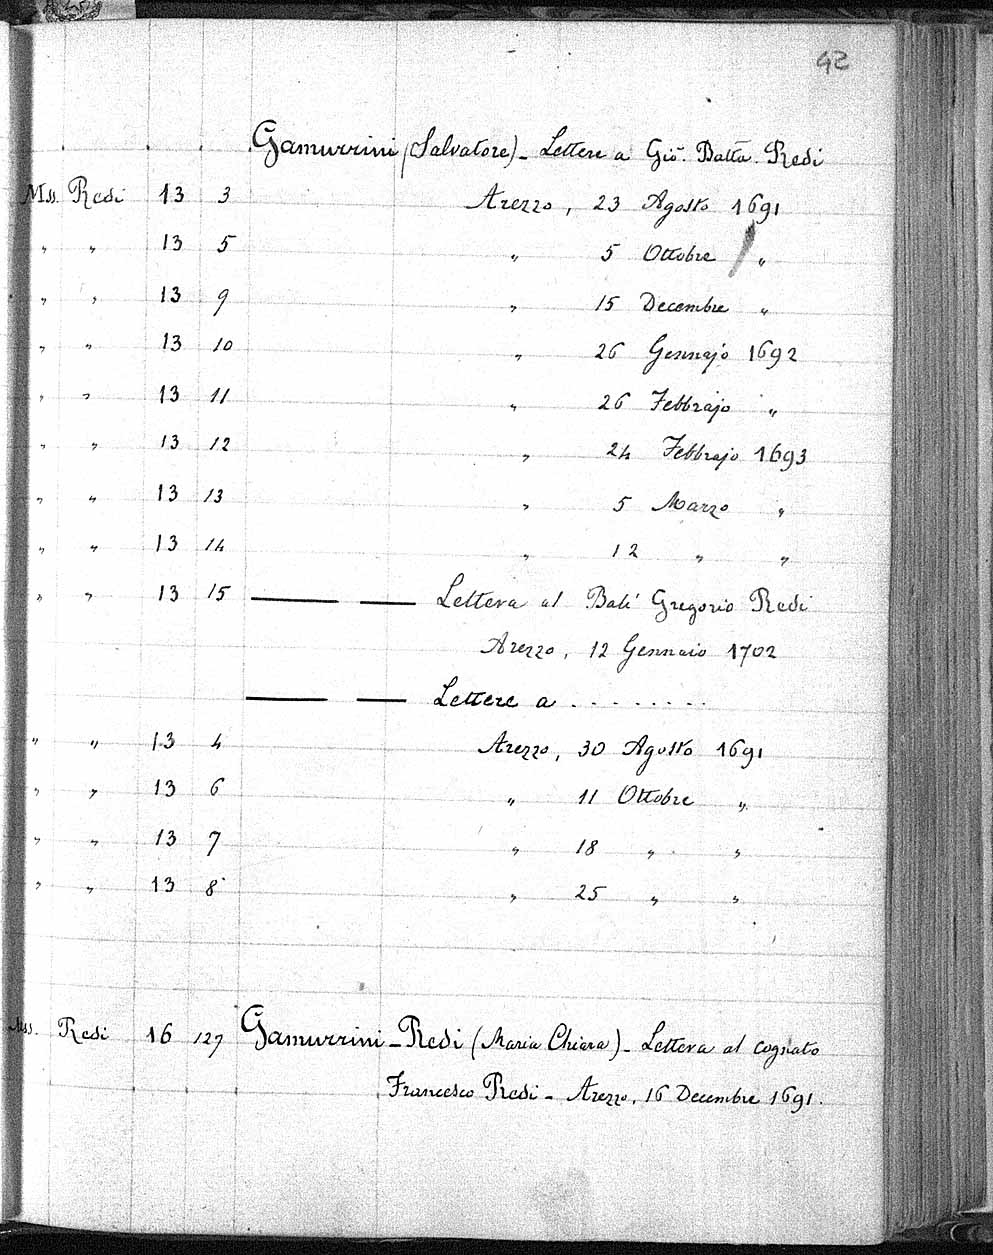 42
Gamurrini (Salvatore) - Lettere a Gio. Batta. Redi
Mss. Redi 13 3 Arezzo, 23 Agosto 1691
" " 13 5 " 5 Ottobre "
" " 13 9 " 15 Decembre "
" " 13 10 " 26 Gennajo 1692
" " 13 11 " 26 Febbrajo "
" " 13 12 " 24 Febbrajo 1693
" " 13 13 " 5 Marzo "
" " 13 14 " 12 " "
" " 13 15 —— — Lettera al Balì Gregorio Redi
Arezzo, 12 Gennaio 1702
—— — Lettere a . . . . . . . .
" " 13 4 Arezzo, 30 Agosto 1691
" " 13 6 " 11 Ottobre "
" " 13 7 " 18 " "
" " 13 8 " 25 " "
Mss. Redi 16 127 Gamurrini-Redi (Maria Chiara) - Lettera al cognato
Francesco Redi - Arezzo, 16 Decembre 1691.